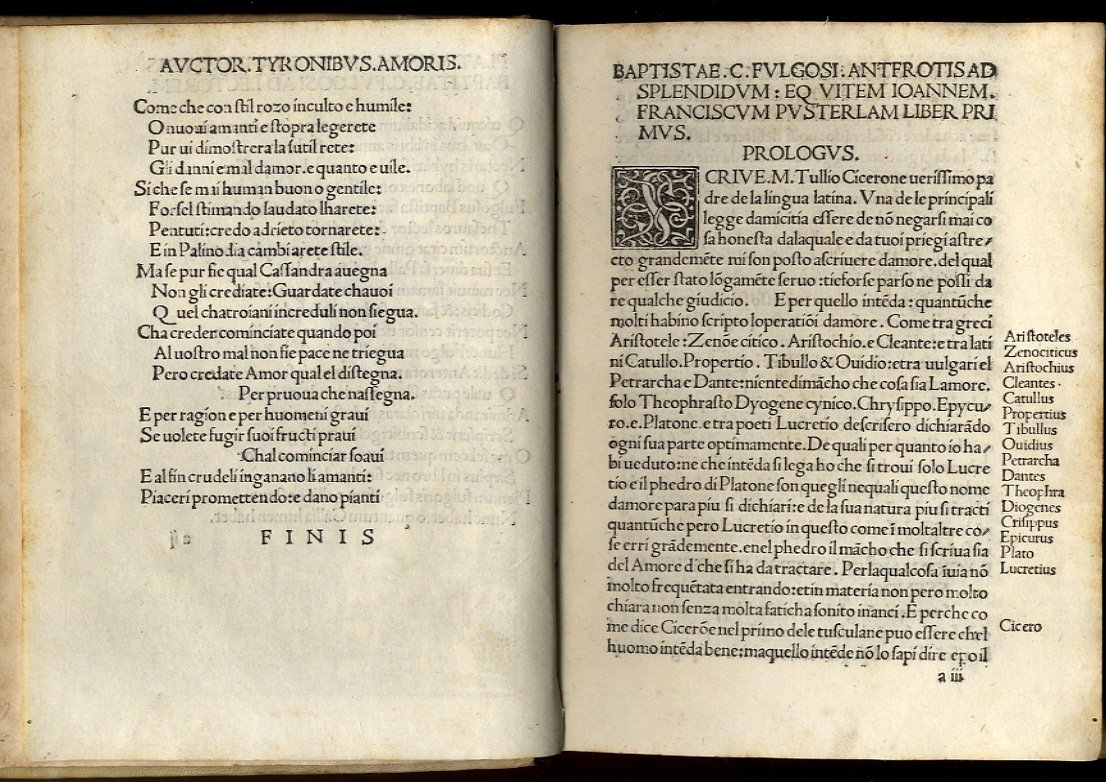 AVCTOR.TYRONIBVS.AMORIS.
Come che con stil rozo inculto e humile:
O nuoui amanti e stopra legerete
Pur ui dimostrera la sutil rete:
Gli danni e mal damor.e quanto e uile.
Si che se mai human buon o gentile:
Forsel stimando laudato lharete:
Pentuti:credo adrieto tornarete:
E in Palinodia cambiarete stile.
Ma se pur fie qual Cassandra auegna
Non gli crediate:Guardate chauoi
Quel chatroiani increduli non siegua.
Cha creder cominciate quando poi
Al uostro mal non fie pace ne triegua
Pero credate Amor qual el distegna.
Per pruoua che nassegna.
E per ragion e per huomeni graui
Se uolete fugir suoi fructi praui
Chal cominciar soaui
E al fin crudeli inganano li amanti:
Piaceri promettendo:e dano pianti
FINIS
BAPTISTAE.C.FVLGOSI:ANTEROTIS AD
SPLENDIDVM:EQVITEM IOANNEM.
FRANCISCVM PVSTERLAM LIBER PRI
MVS.
PROLOGVS.
SCRIVE.M.Tullio Cicerone uerissimo pa
dre de la lingua latina. Vna de le principali
legge damicitia essere de nõ negarsi mai co
sa honesta dalaquale e da tuoi priegi astre/
cto grandemẽte mi son posto ascriuere damore.del qual
per esser stato lõgamẽte seruo:tieforse parso ne possi da
re qualche giudicio. E per quello intẽda:quantũche
molti habino scripto loperatiõi damõre. Come tra greci
Aristotele:Zenõe citico.Aristochio.e Cleante:e tra lati
ni Catullo.Propertio. Tibullo & Ouidio:etra uulgari el
Petrarcha e Dante:niente dimãcho che cosa sia Lamore.
solo Theophrasto Dyogene cynico.Chrysippo.Epycu/
ro.e.Platone.e tra poeti Lucretio descrisero dichiarãdo
ogni sua parte optimamente.De quali per quanto io ha/
bi ueduto:ne che intẽda si lega ho che si troui solo Lucre
tio e il phedro di Platone son quegli nequali questo nome
damore para piu si dichiari:e de la sua natura piu si tracti
quantũche pero Lucretio in questo come ĩ moltaltre co/
se erri grãdemente.enel phedro il mãcho che si scriua sia
del Amore d'che si ha da tractare. Perlaqualcosa ĩ uia nõ
molto frequẽtata entrando:etin materia non pero molto
chiara non senza molta faticha son ito inanci.E perche co
me dice Cicerõe nel primo dele tusculane puo essere chel
huomo intẽda bene:maquello intẽde nõ lo sapi dire e po il
a iii
Aristoteles
Zenociticus
Aristochius
Cleantes.
Catullus
Propertius
Tibullus
Ouidius
Petrarcha
Dantes
Theophra
Diogenes
Crisippus
Epicurus
Plato
Lucretius
Cicero